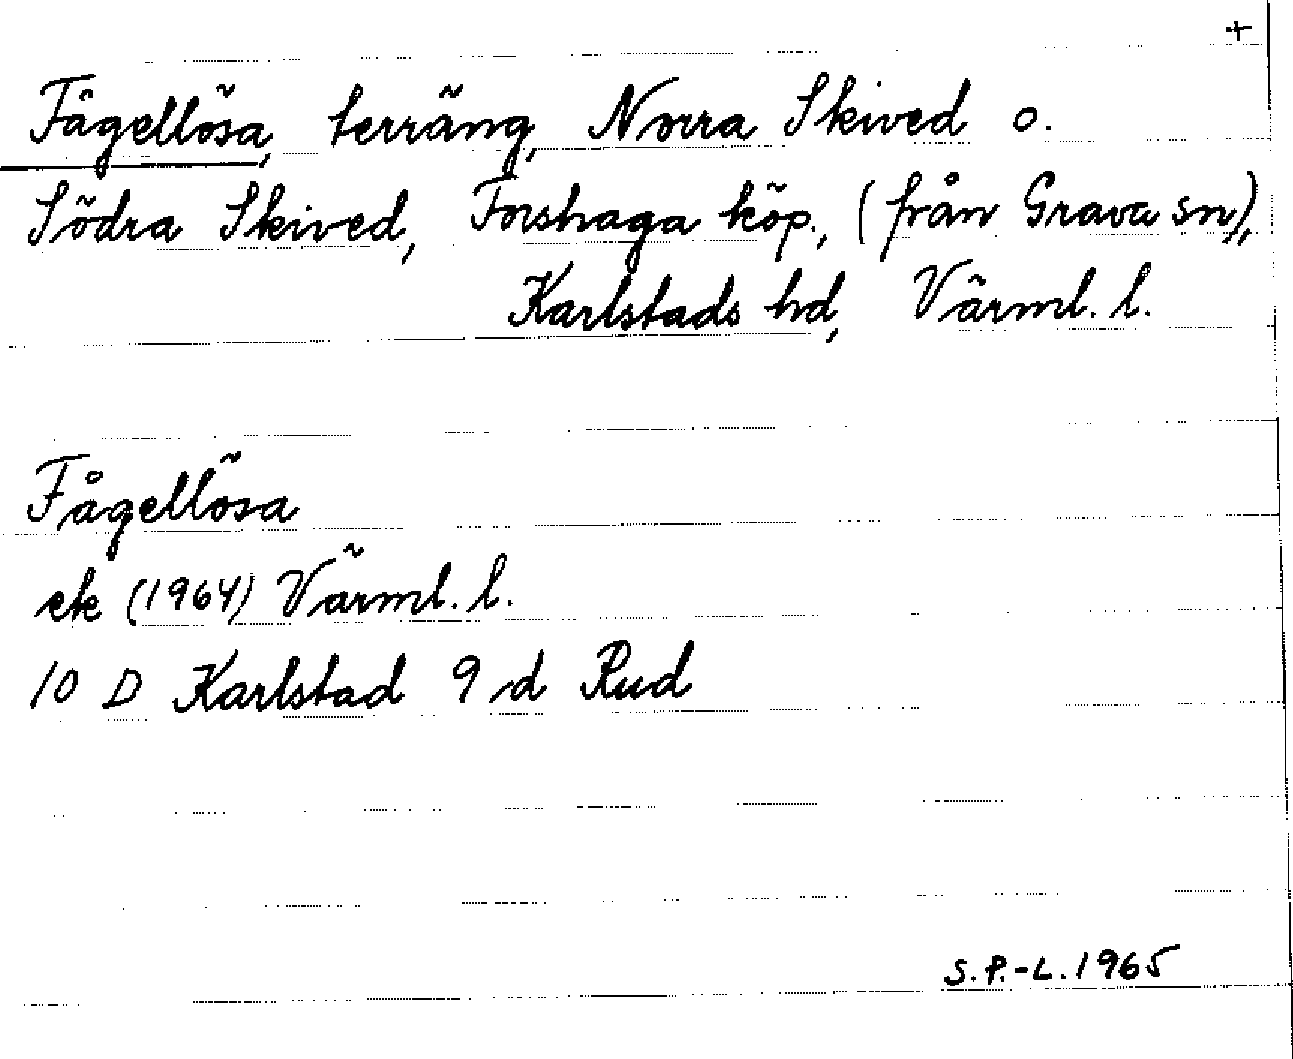 +
Fågellösa, terräng, Norra Skived o.
Södra Skived, Forshaga köp., (från Grava sn),
Karlstads hd, Värml. l.
Fågellösa
ek (1964) Värml. l.
10 D Karlstad 9 d Rud
S.P.-L. 1965